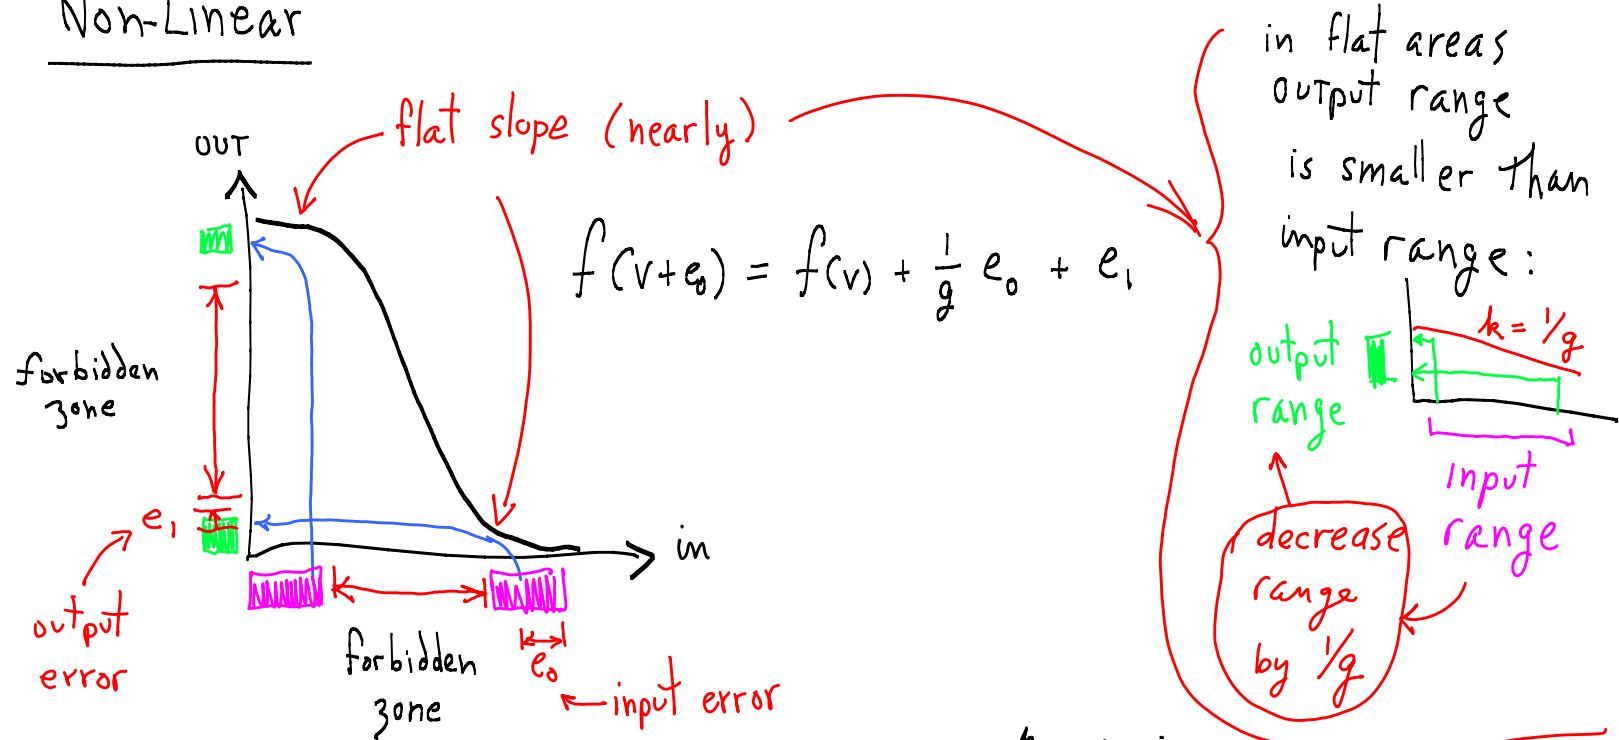 Non-Linear
flat slope (nearly)
OUT
f(v+e₀) = f(v) + 1/g e₀ + e₁
forbidden
zone
e₁
output
error
in
forbidden
zone
e₀
input error
in flat areas
output range
is smaller than
input range:
k = 1/g
output
range
input
range
decrease
range
by 1/g